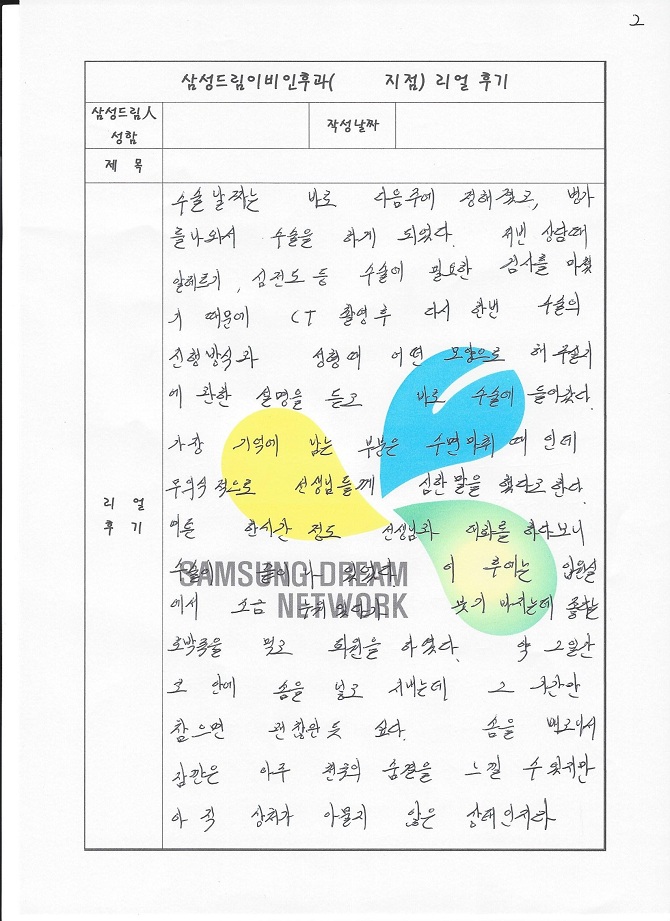 2
삼성드림이비인후과( 지점) 리얼 후기
삼성드림人
성함
작성날짜
제 목
리 얼
후 기
수술 날짜는 바로 다음주에 정해졌고, 병가
를 나와서 수술을 하게 되었다. 저번 상담때
알레르기, 심전도 등 수술에 필요한 검사를 마쳤
기 때문에 CT 촬영 후 다시 한번 수술의
진행방식과 성형에 어떤 모양으로 해 주실지
에 관한 설명을 듣고 바로 수술에 들어갔다.
가장 기억에 남는 부분은 수면마취 때 인데
무의식적으로 선생님들께 심한 말을 했다고 한다.
여튼 한시간 정도 선생님과 대화를 하다보니
수술이 끝이 나 있었다. 이 후에는 입원실
에서 조금 누워있다가 붓기 빠지는데 좋은
호박죽을 먹고 퇴원을 하였다. 약 2일간
코 안에 솜을 넣고 지내는데 그 시간만
참으면 괜찮은 듯 싶다. 솜을 빼고나서
잠깐은 아주 천국의 숨결을 느낄 수 있지만
아직 상처가 아물지 않은 상태인지라
SAMSUNG DREAM
NETWORK